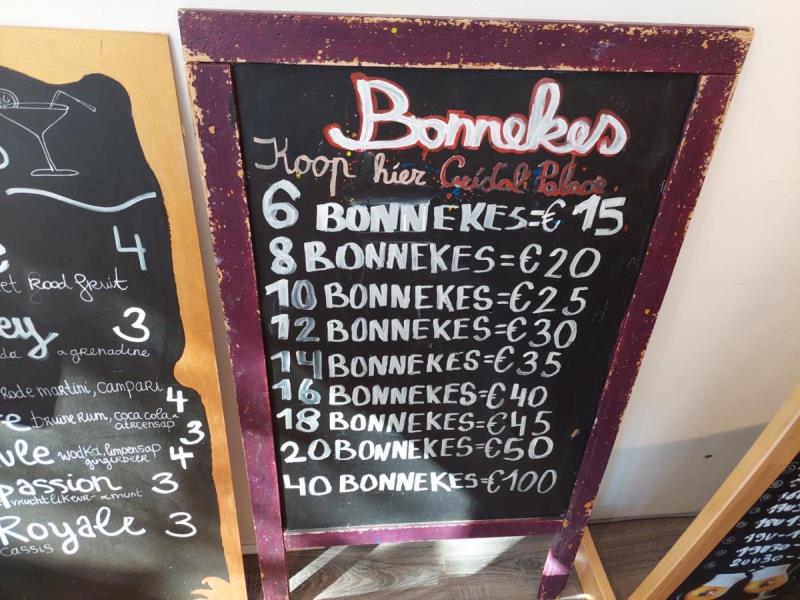 4
et Rood fruit
ey
3
a grenadine
Rode martini, campari
4
bruine rum, coca cola
3
wodka, limoensap
gingerbeer
4
passion 3
Royale 3
Cassis
Bonnekes
Koop hier Cristal Palace
6 BONNEKES=€ 15
8 BONNEKES=€20
10 BONNEKES=€25
12 BONNEKES=€30
14 BONNEKES=€35
16 BONNEKES=€40
18 BONNEKES=€45
20 BONNEKES=€50
40 BONNEKES=€100